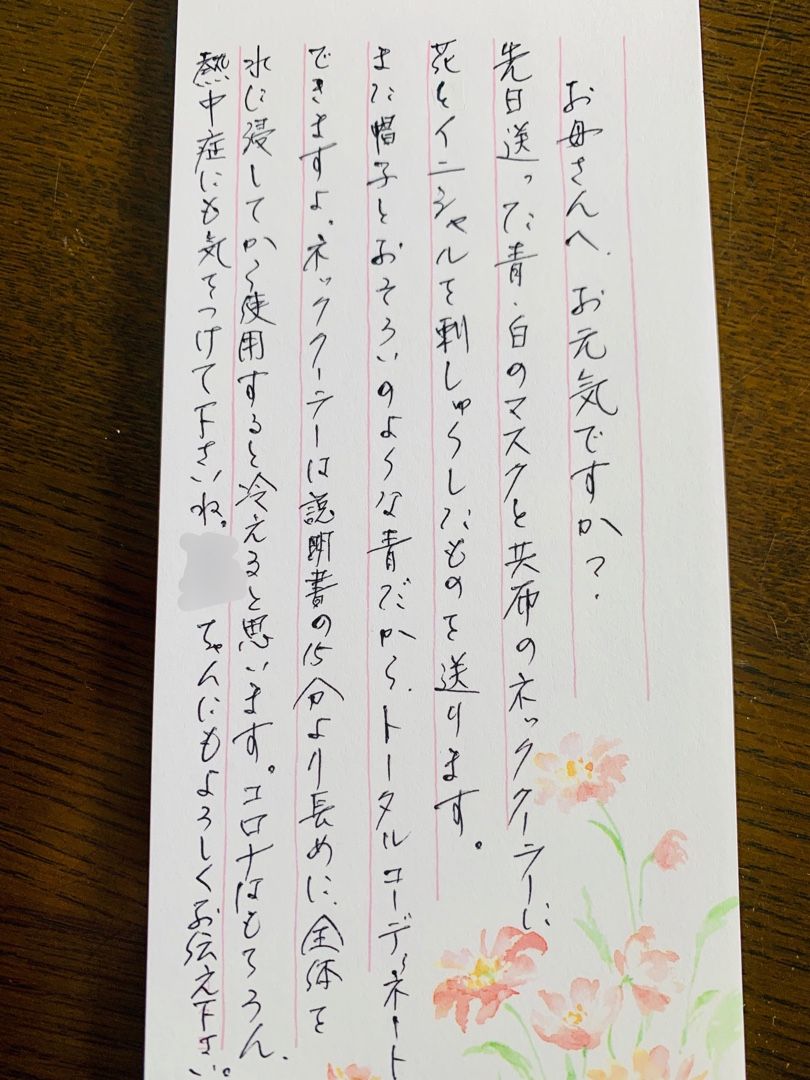 お母さんへ、お元気ですか？
先日送った青・白のマスクと共布のネッククーラーに
花とイニシャルを刺しゅうしたものを送ります。
また帽子とおそろいのような青だから、トータルコーディネート
できますよ。ネッククーラーは説明書の15分より長めに、全体を
水に浸してから使用すると冷えると思います。コロナはもちろん、
熱中症にも気をつけて下さいね。ちゃんにもよろしくお伝え下さい。